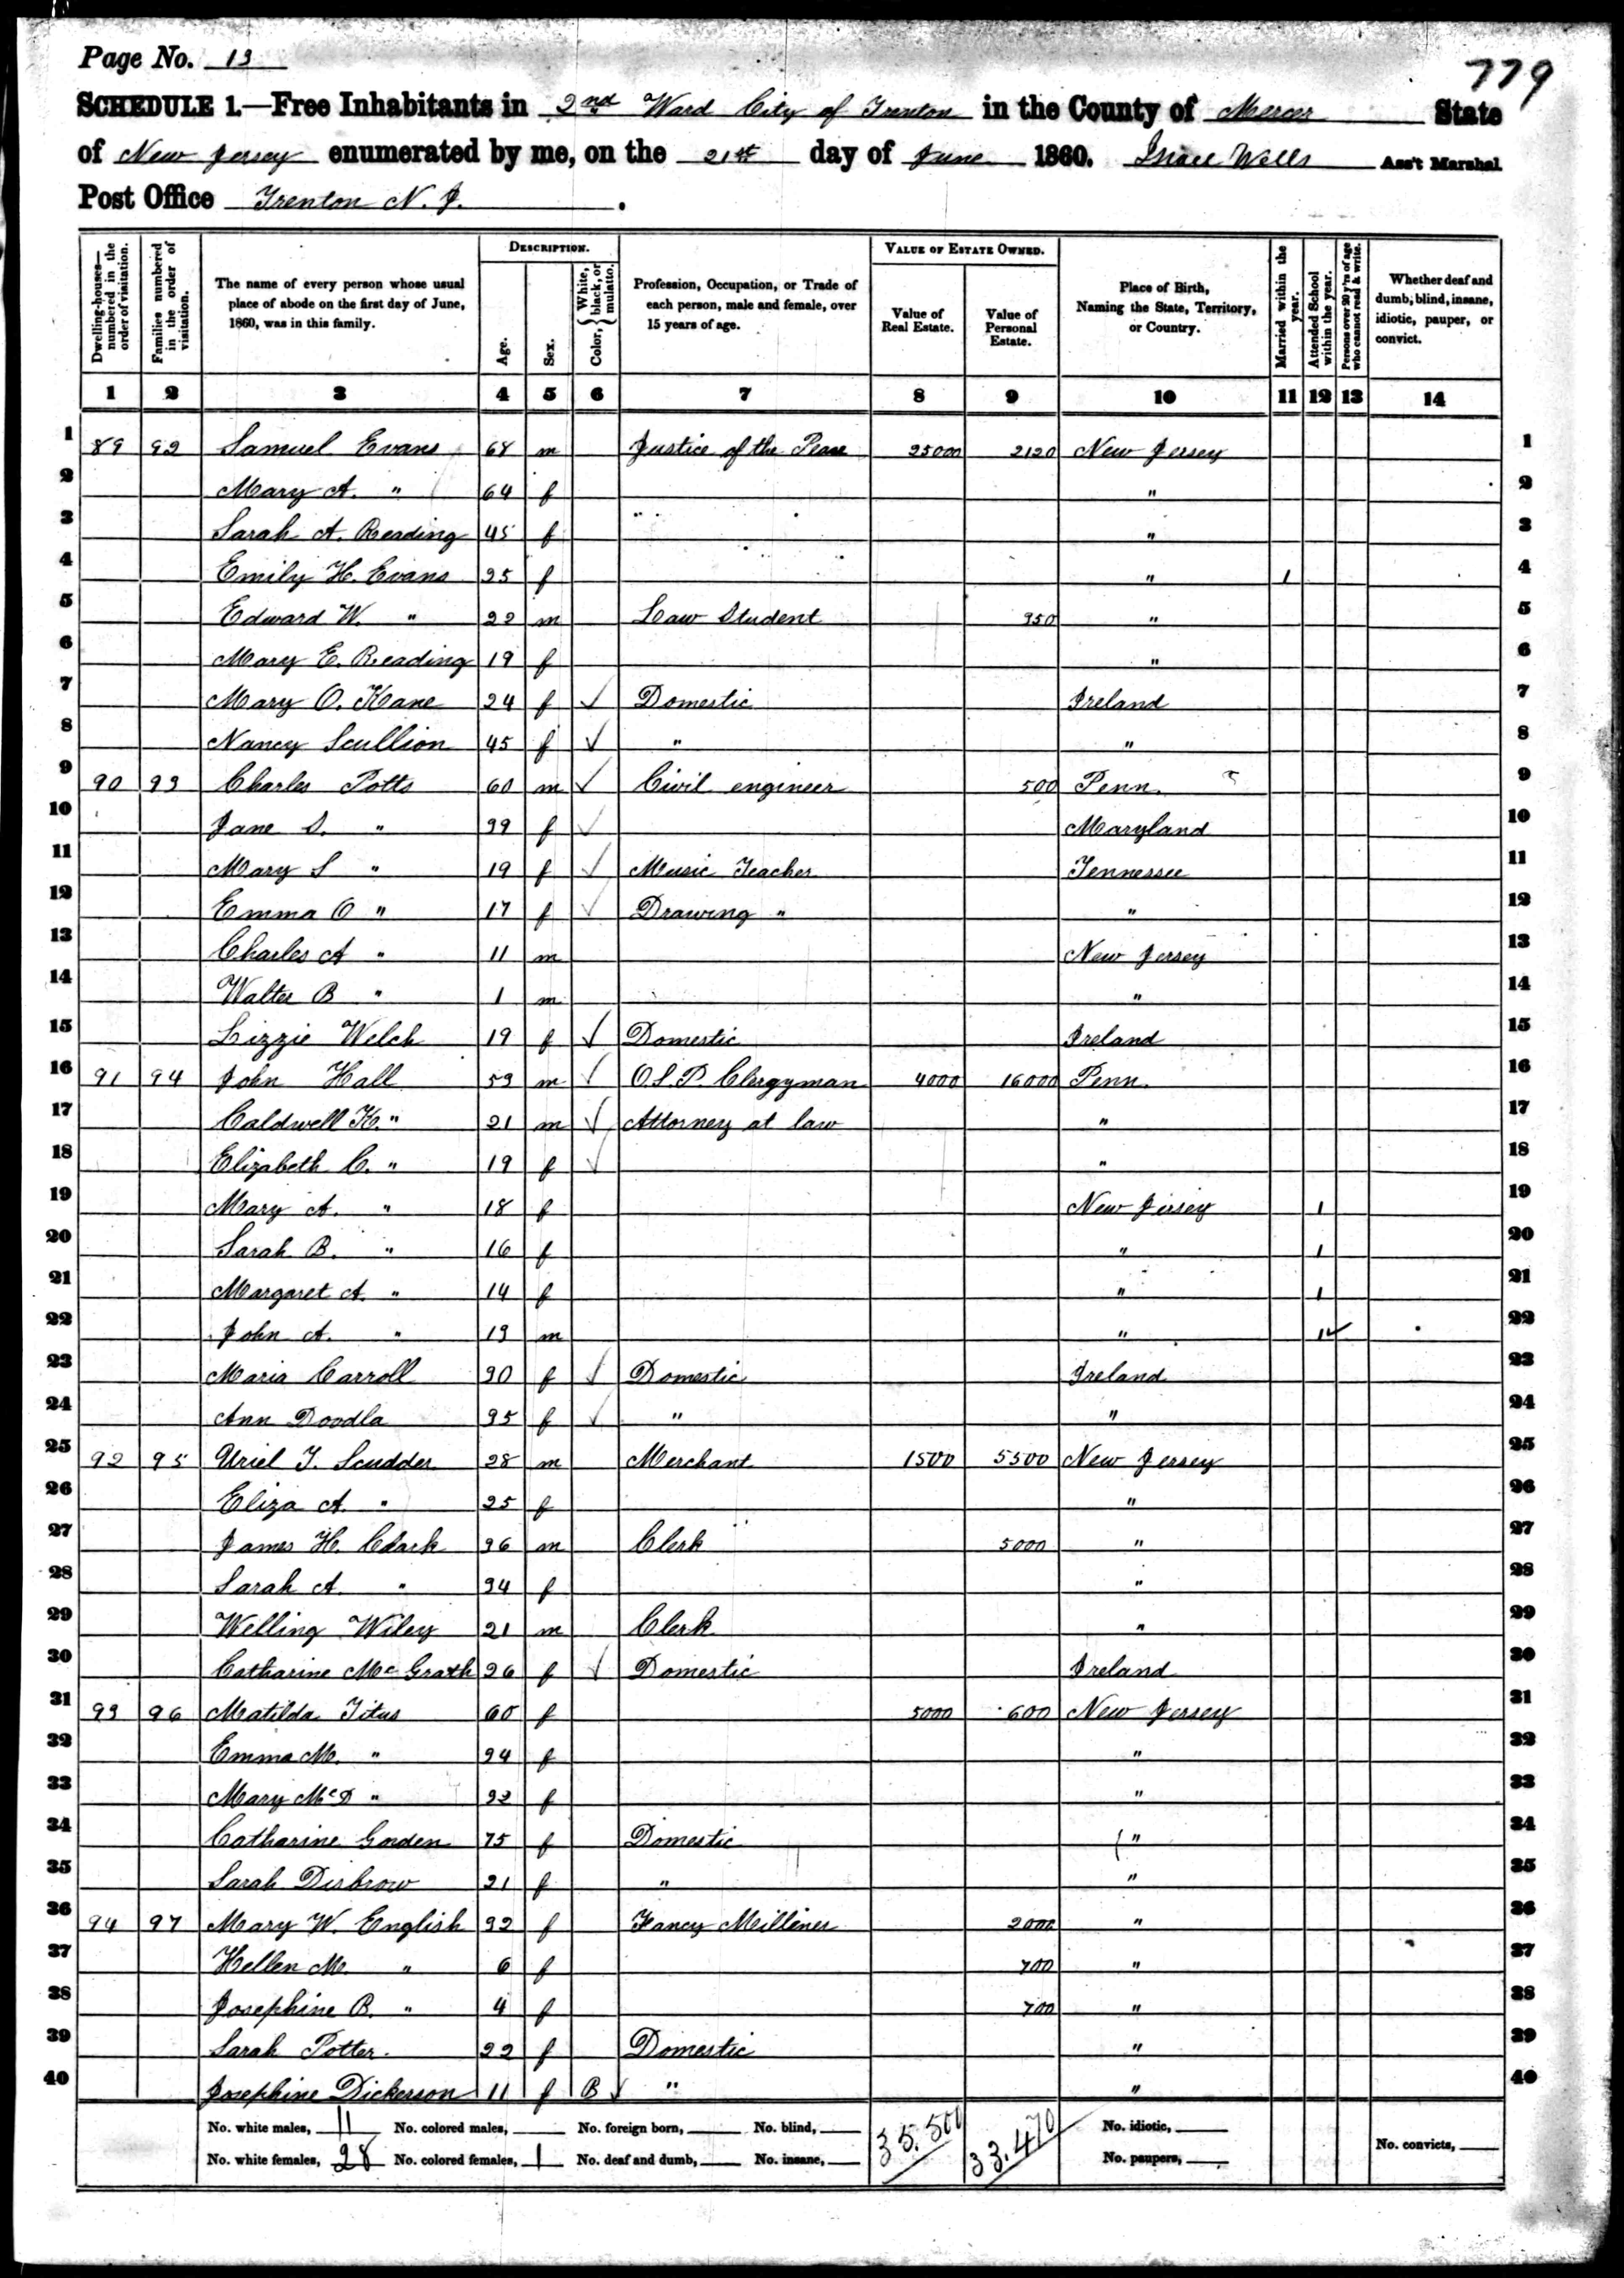 Page No. 13
779
SCHEDULE 1.—Free Inhabitants in 2nd Ward City of Trenton in the County of Mercer State
of New Jersey enumerated by me, on the 21st day of June 1860. Israel Wells Ass't Marshal
Post Office Trenton N. J.
Dwelling-houses—numbered in the order of visitation.
Families numbered in the order of visitation.
The name of every person whose usual place of abode on the first day of June, 1860, was in this family.
DESCRIPTION.
Age.
Sex.
Color, { White, black, or mulatto.
Profession, Occupation, or Trade of each person, male and female, over 15 years of age.
VALUE OF ESTATE OWNED.
Value of Real Estate.
Value of Personal Estate.
Place of Birth, Naming the State, Territory, or Country.
Married within the year.
Attended School within the year.
Persons over 20 y'rs of age who cannot read & write.
Whether deaf and dumb, blind, insane, idiotic, pauper, or convict.
1 2 3 4 5 6 7 8 9 10 11 12 13 14
1 89 92 Samuel Evans 68 m Justice of the Peace 25000 2120 New Jersey 1
2 Mary A. " 64 f " 2
3 Sarah A. Reading 45 f " 3
4 Emily H. Evans 25 f " 1 4
5 Edward W. " 22 m Law Student 350 " 5
6 Mary E. Reading 19 f " 6
7 Mary O. Kane 24 f ✓ Domestic Ireland 7
8 Nancy Scullion 45 f ✓ " " 8
9 90 93 Charles Potts 60 m ✓ Civil engineer 500 Penn. 9
10 Jane S. " 39 f ✓ Maryland 10
11 Mary S " 19 f ✓ Music Teacher Tennessee 11
12 Emma O " 17 f ✓ Drawing " " 12
13 Charles A " 11 m New Jersey 13
14 Walter B " 1 m " 14
15 Lizzie Welch 19 f ✓ Domestic Ireland 15
16 91 94 John Hall 53 m ✓ O.S.P. Clergyman 4000 16000 Penn. 16
17 Caldwell K. " 21 m ✓ Attorney at law " 17
18 Elizabeth C. " 19 f ✓ " 18
19 Mary A. " 18 f New Jersey 1 19
20 Sarah B. " 16 f " 1 20
21 Margaret A. " 14 f " 1 21
22 John A. " 13 m " 1 ✓ 22
23 Maria Carroll 30 f ✓ Domestic Ireland 23
24 Ann Doodla 35 f ✓ " " 24
25 92 95 Uriel T. Scudder 28 m Merchant 1500 5500 New Jersey 25
26 Eliza A. " 25 f " 26
27 James H. Clark 36 m Clerk 5000 " 27
28 Sarah A. " 34 f " 28
29 Welling Wiley 21 m Clerk " 29
30 Catharine McGrath 26 f ✓ Domestic Ireland 30
31 93 96 Matilda Titus 60 f 5000 600 New Jersey 31
32 Emma M. " 24 f " 32
33 Mary McD " 22 f " 33
34 Catharine Gorden 75 f Domestic " 34
35 Sarah Disbrow 21 f " " 35
36 94 97 Mary W. English 32 f Fancy Milliner 2000 " 36
37 Hellen M. " 6 f 700 " 37
38 Josephine B. " 4 f 700 " 38
39 Sarah Potter 22 f Domestic " 39
40 Josephine Dickerson 11 f B ✓ " " 40
No. white males, 11 No. colored males, No. foreign born, No. blind, 35.500 33.470 No. idiotic,
No. white females, 28 No. colored females, 1 No. deaf and dumb, No. insane, No. paupers, No. convicts,